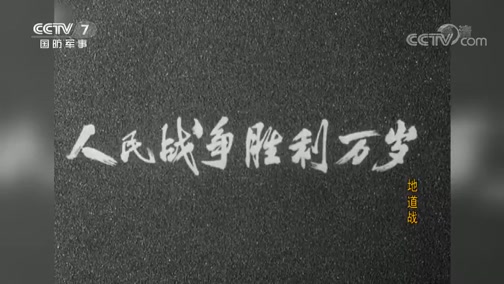 CCTV 7
国防军事
CCTV.com
人民战争胜利万岁
地道战